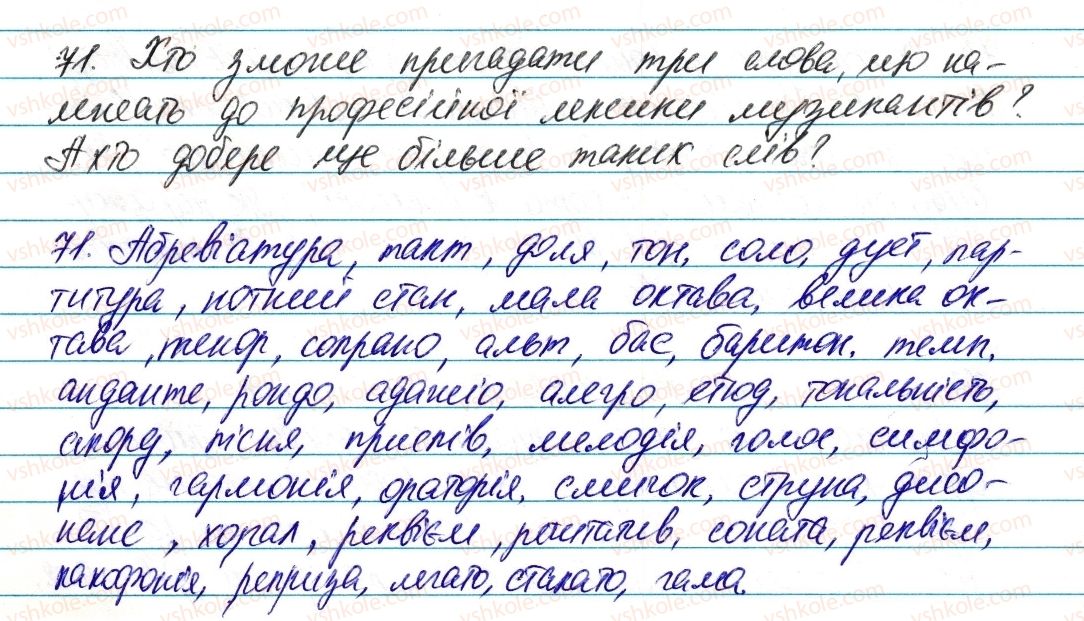 71. Хто зможе пригадати три слова, що на-
лежать до професійної лексики музикантів?
А хто добере ще більше таких слів?
71. Абревіатура, такт, доля, тон, соло, дует, пар-
титура, нотний стан, мала октава, велика ок-
тава, тенор, сопрано, альт, бас, баритон, темп,
анданте, рондо, адажіо, алегро, етюд, тональність,
акорд, пісня, приспів, мелодія, голос, симфо-
нія, гармонія, ораторія, смичок, струна, дисо-
нанс, хорал, реквієм, речитатив, соната, реквієм,
какофонія, реприза, легато, стакато, гама.